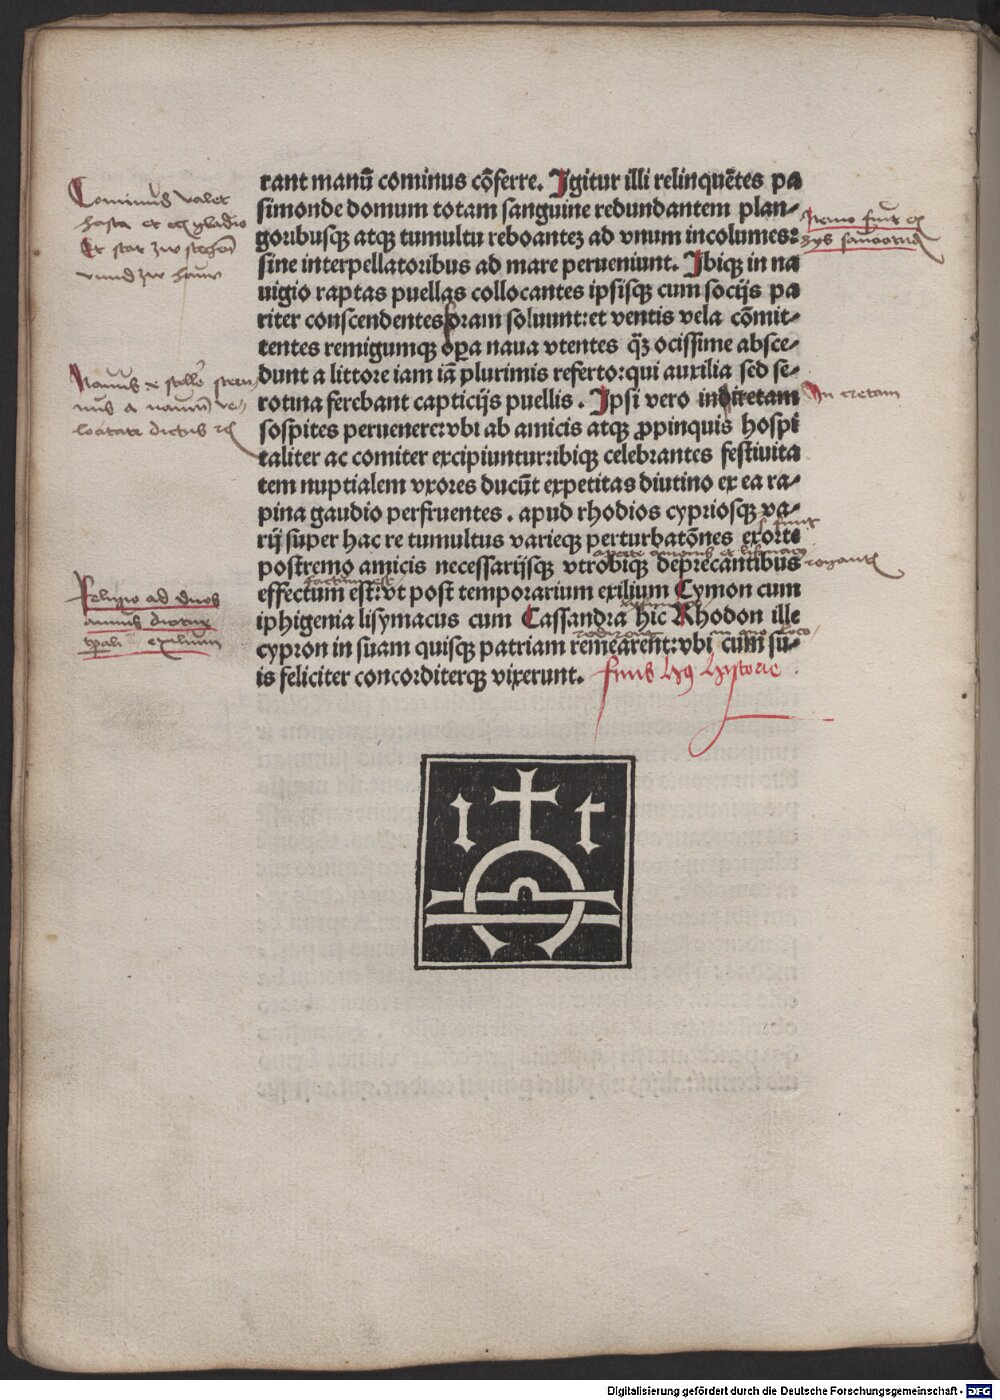 rant manū cominus cōferre. Igitur illi relinquētes pa
simonde domum totam sanguine redundantem plan⸗
goribusqȝ atqȝ tumultu reboantez ad vnum incolumes:
sine interpellatoribus ad mare perueniunt. Ibiqȝ in na
uigio raptas puellas collocantes ipsisqȝ cum socijs pa
riter conscendentes oram soluunt:et ventis vela cōmit⸗
tentes remigumqȝ oꝑa naua vtentes qȝ ocissime absce⸗
dunt a littore iam iā plurimis referto:qui auxilia sed se⸗
rotina ferebant capticijs puellis. Ipsi vero in cretam
sospites peruenere:vbi ab amicis atqȝ ꝓpinquis hospi
taliter ac comiter excipiuntur:ibiqȝ celebrantes festiuita
tem nuptialem vxores ducūt expetitas diutino ex ea ra⸗
pina gaudio perfruentes. apud rhodios cypriosqȝ va⸗
rij super hac re tumultus varieqȝ perturbatōnes exorte
postremo amicis necessarijsqȝ vtrobiqȝ deprecantibus
effectum est:vt post temporarium exilium Cymon cum
iphigenia lisymacus cum Cassandra hic Rhodon ille
cypron in suam quisqȝ patriam remearent:vbi cum su⸗
is feliciter concorditerqȝ vixerunt.
finis hꝰ hystorie
Cominus valet
hasta et gladio
Et stat zw stechen
vnnd zw hawen
In cretam
ad duos
annos
exilium
i t
Digitalisierung gefördert durch die Deutsche Forschungsgemeinschaft - DFG